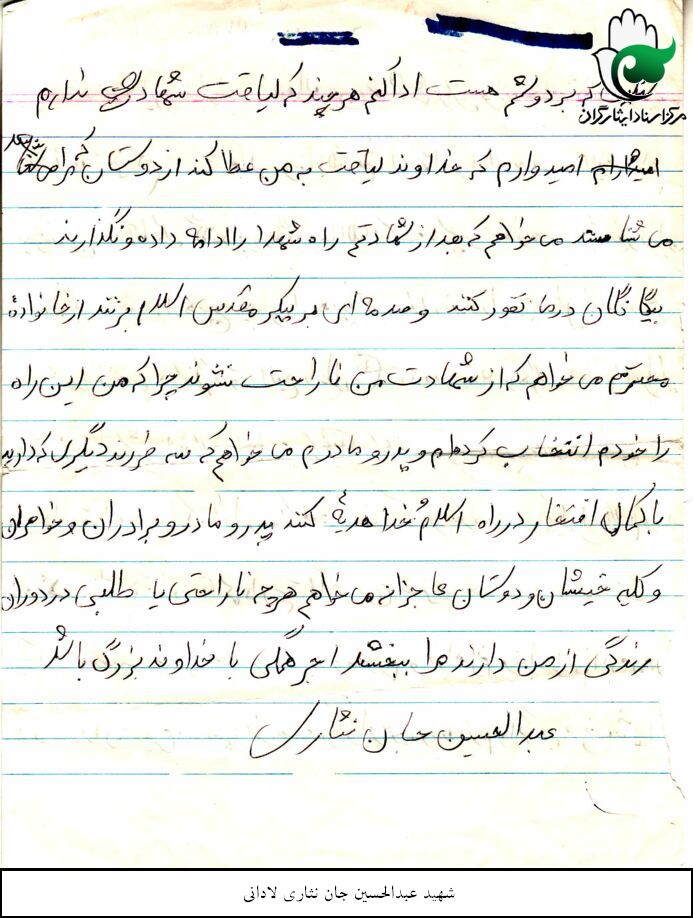 که بر دوشم هست ادا کنم هر چند که لیاقت شهادت ندارم
مرکز اسناد ایثارگران
امیدوارم که خداوند لیاقت به من عطا کند از دوستان که مرا
می شناسند می خواهم که بعد از شهادتم راه شهدا را ادامه داده و نگذارند
بیگانگان در ما نفوذ کنند و صدمه ای بر پیکر مقدس اسلام بزنند از خانوادۀ
محترم می خواهم که از شهادت من ناراحت نشوند چرا که من این راه
را خودم انتخاب کرده‌ام و پدر و مادرم می خواهم که سه فرزند دیگری که دارید
با کمال افتخار در راه اسلام و خدا هدیۀ کنند پدر و مادر و برادران و خواهران
و کلیه خیشان و دوستان عاجزانه می خواهم هر چه ناراحتی یا طلبی در دوران
زندگی از من دارند مرا ببخشند اجر همگی با خداوند بزرگ باشد
عبدالحسین جان نثاری
شهید عبدالحسین جان نثاری لادانی